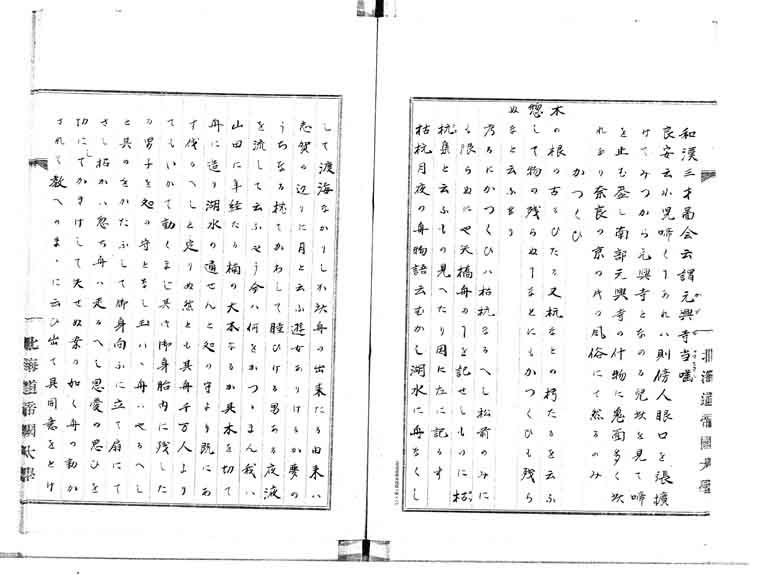 和漢三才圖会云謂元興寺当嚂
良安云小児啼くしあれハ則傍人眼口を張擴
けてみつから元興寺となのる児坎を見て啼
を止む蓋し南部元興寺の什物に鬼面多く坎
れあり奈良の京の代の風俗にて然るのみ
かつくひ
木の根の古るひたる又杭なとの朽たるを云ふ
惣して物の残らぬことなとにもかつくひも残ら
ぬなと云ふなり
乃るにかつくひハ枯杭なるへし松前のみに
も限らぬにや天橋舟のことを記せしものに枯
杭集と云ふもの見へたり因に左に記るす
枯杭月夜の舟物語云むかし湖水に舟なくし
して渡海なかりしか此舟の出来たる由来ハ
志賀の辺りに月と云ふ遊女ありけるか夢の
うちなる枕てかわして睦ひける男ある夜涙
を流して云ふやう今ハ何をかつゝまん我ハ
山田に年経たる楠の大木なるか其木を切て
舟に造り湖水の通せんと処の守より既にあ
す伐るへしと定りぬ然とも其舟千万人より
てもいかて動くまし其時御身胎内に残した
る男子を処の守となし玉ハゝ舟ハやるへし
と其のをかたふして御身向ふに立て扇にて
さし招かハ忽ち舟ハ走るへし思愛の思ひを
切にしてかきけして失せぬ案の如く舟の動か
されハ教へのまゝに云ひ出て其同意をとけ
北海道帝國大學
北海道帝國大學